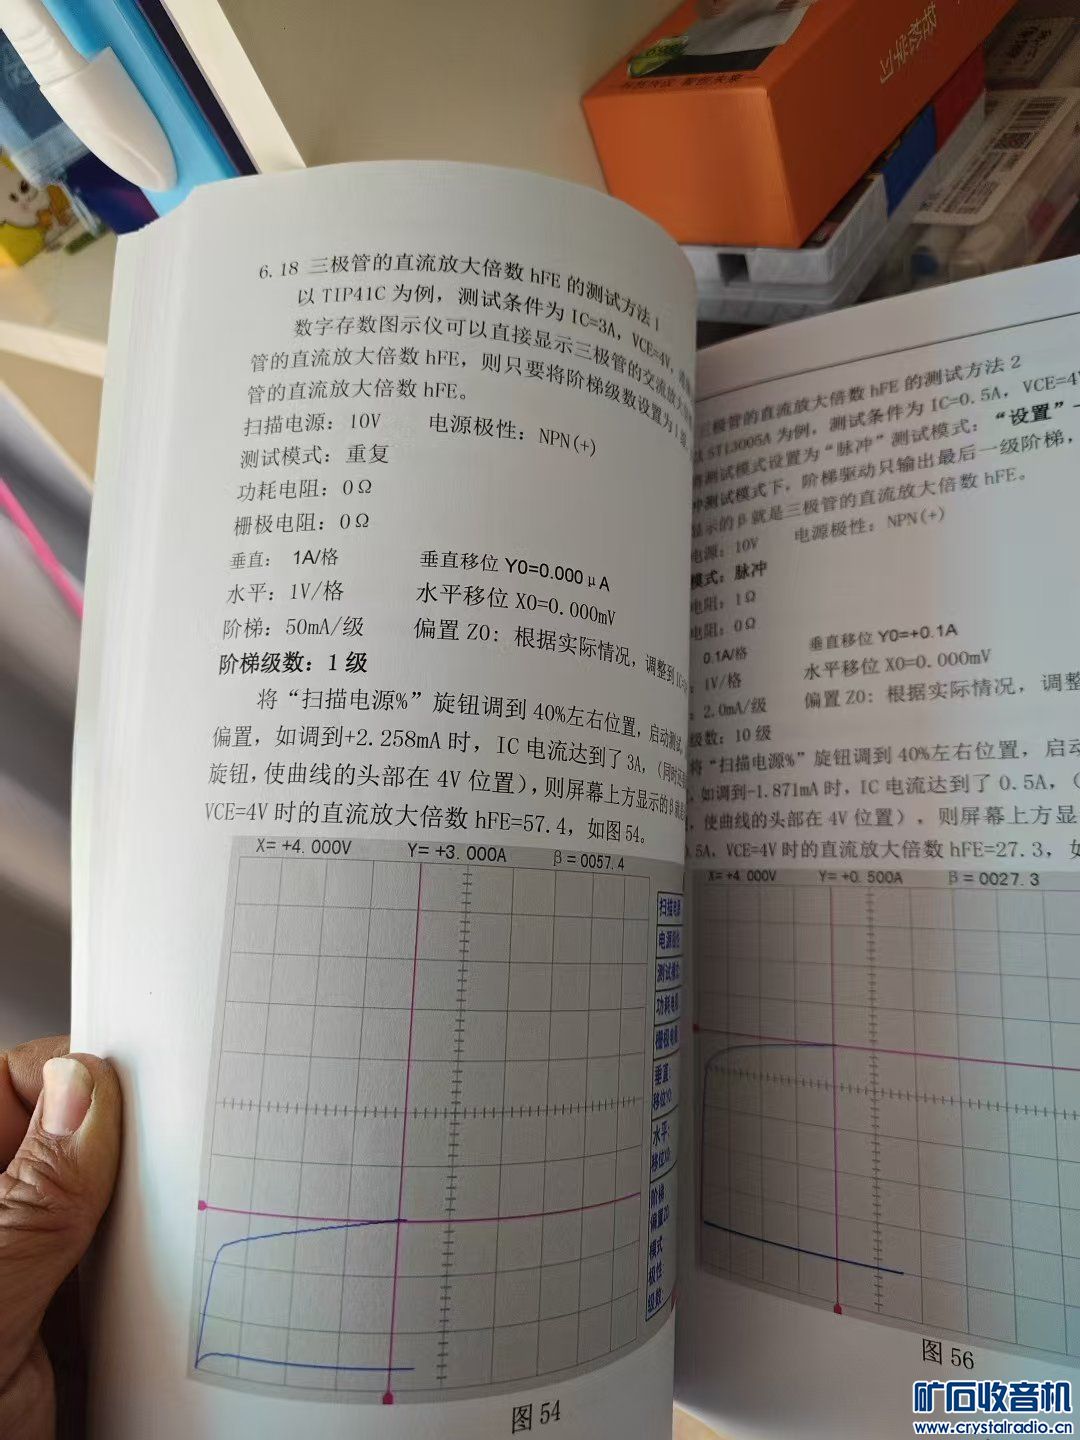 6.18 三极管的直流放大倍数 hFE 的测试方法1
以 TIP41C 为例，测试条件为 IC=3A，VCE=4V，
数字存数图示仪可以直接显示三极管的交流放大
管的直流放大倍数 hFE，则只要将阶梯级数设置为1级
管的直流放大倍数 hFE。
扫描电源：10V 电源极性：NPN(+)
测试模式：重复
功耗电阻：0Ω
栅极电阻：0Ω
垂直： 1A/格 垂直移位 Y0=0.000μA
水平：1V/格 水平移位 X0=0.000mV
阶梯：50mA/级 偏置 Z0：根据实际情况，调整到
阶梯级数：1 级
将“扫描电源%”旋钮调到 40%左右位置，启动测试，
偏置，如调到+2.258mA 时，IC 电流达到了 3A，（同时
旋钮，使曲线的头部在 4V 位置），则屏幕上方显示的β
VCE=4V 时的直流放大倍数 hFE=57.4，如图 54。
X= +4.000V Y= +3.000A β=0057.4
扫描电源
电源极性
测试模式
功耗电阻
栅极电阻
垂直
移位Y0:
水平
移位X0:
阶梯
偏置Z0
模式
极性
级数
图 54
三极管的直流放大倍数 hFE 的测试方法 2
以 ST13005A 为例，测试条件为 IC=0.5A，VCE=4V
将测试模式设置为“脉冲”测试模式：“设置”
冲测试模式下，阶梯驱动只输出最后一级阶梯，
显示的β就是三极管的直流放大倍数 hFE。
电源：10V 电源极性：NPN(+)
模式：脉冲
电阻：1Ω
电阻：0Ω
0.1A/格 垂直移位 Y0=+0.1A
：1V/格 水平移位 X0=0.000mV
：2.0mA/级 偏置 Z0：根据实际情况，调整
级数：10 级
将“扫描电源%”旋钮调到 40%左右位置，启动
，如调到-1.871mA 时，IC 电流达到了 0.5A，（
，使曲线的头部在 4V 位置），则屏幕上方显
.5A，VCE=4V 时的直流放大倍数 hFE=27.3，如
X= +4.000V Y= +0.500A β=0027.3
图 56
矿石收音机
www.crystalradio.cn